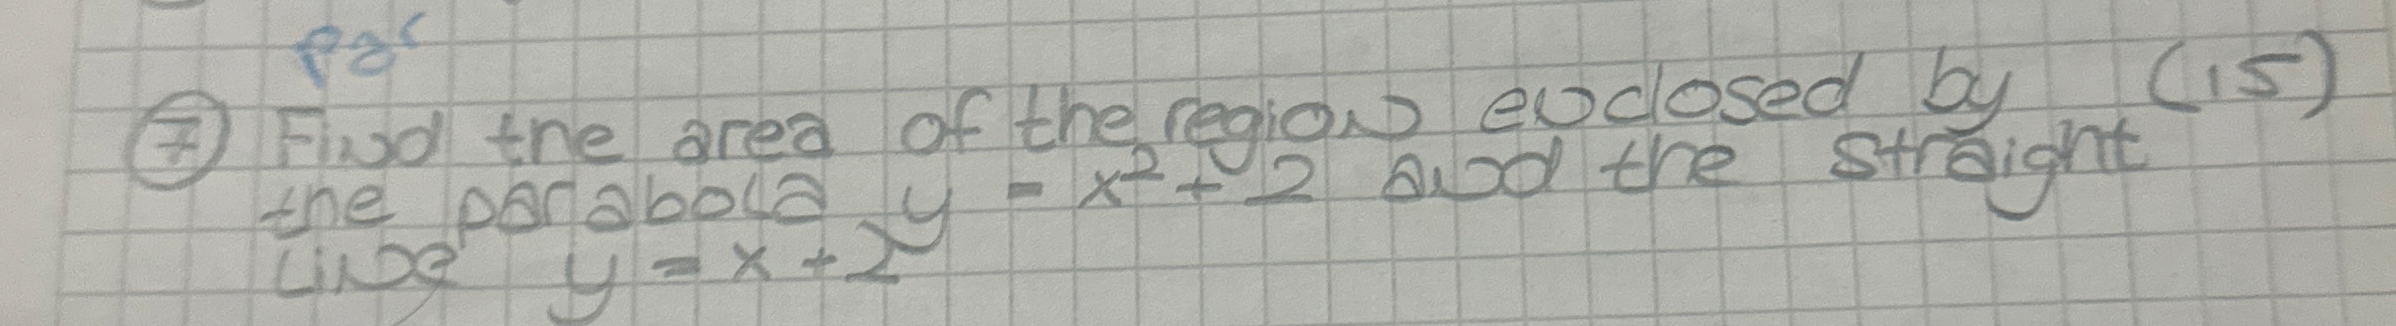 par
7 Find the area of the region enclosed by (15)
the parabola y = x² + 2 and the straight
line y = x + 2